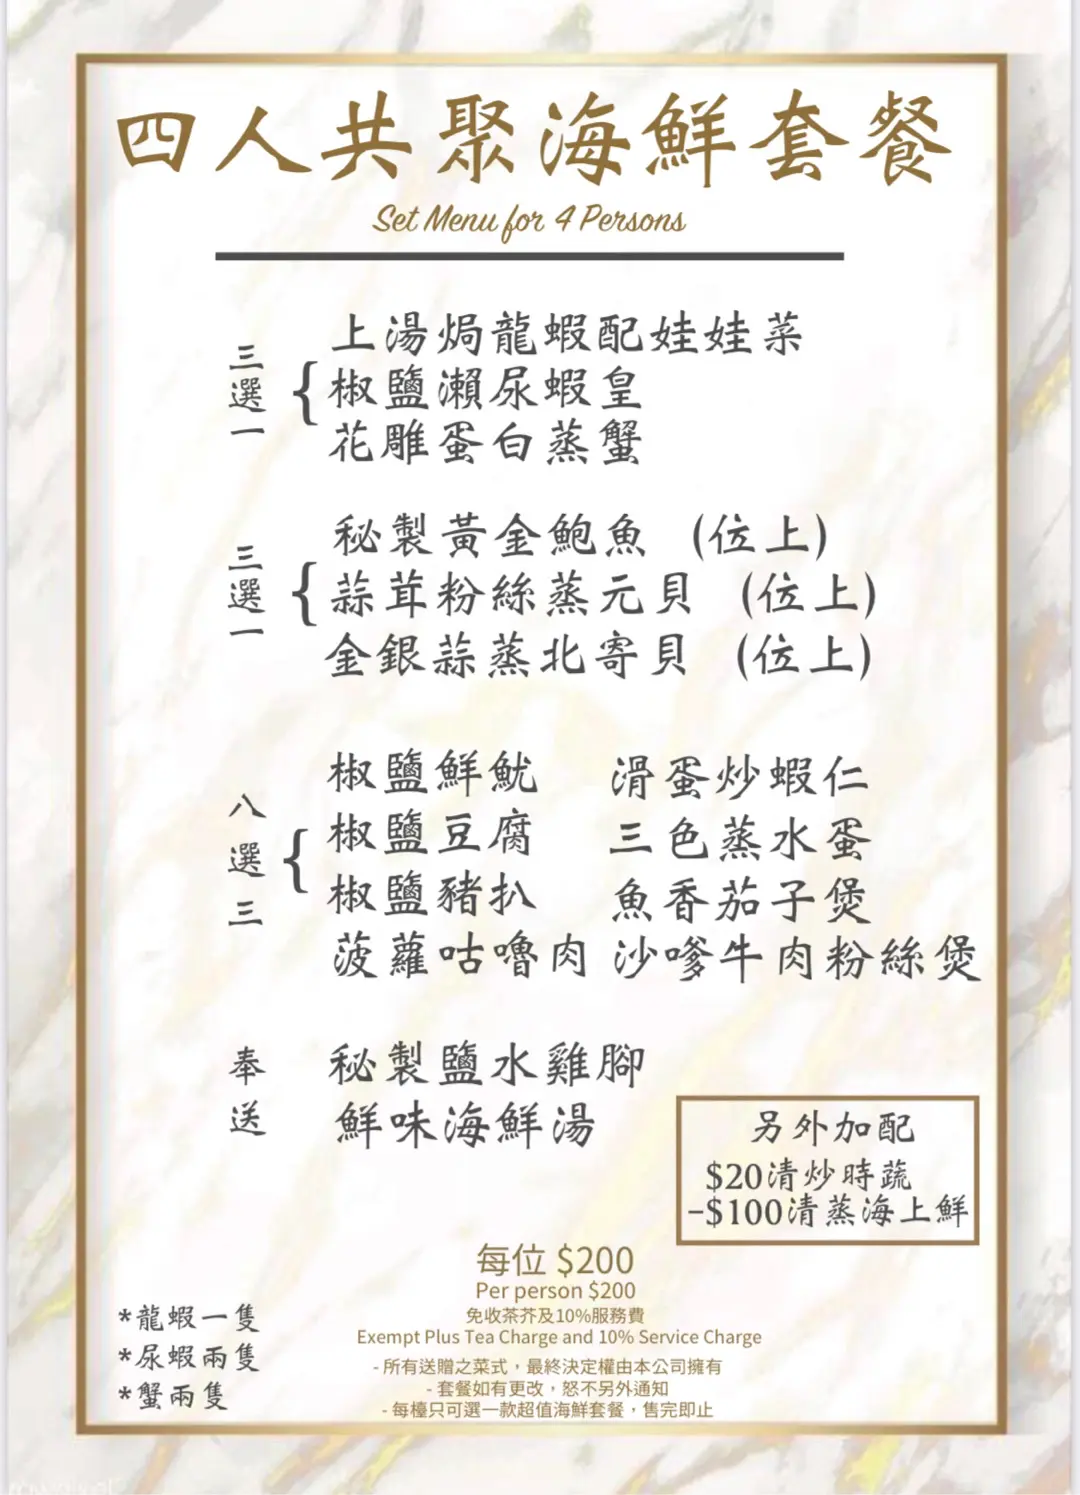 四人共聚海鮮套餐
Set Menu for 4 Persons
三選一
{
上湯焗龍蝦配娃娃菜
椒鹽瀨尿蝦皇
花雕蛋白蒸蟹
三選一
{
秘製黃金鮑魚 (位上)
蒜茸粉絲蒸元貝 (位上)
金銀蒜蒸北寄貝 (位上)
八選三
{
椒鹽鮮魷 滑蛋炒蝦仁
椒鹽豆腐 三色蒸水蛋
椒鹽豬扒 魚香茄子煲
菠蘿咕嚕肉 沙嗲牛肉粉絲煲
奉送
秘製鹽水雞腳
鮮味海鮮湯
另外加配
$20清炒時蔬
-$100清蒸海上鮮
每位 $200
Per person $200
免收茶芥及10%服務費
Exempt Plus Tea Charge and 10% Service Charge
- 所有送贈之菜式，最終決定權由本公司擁有
- 套餐如有更改，怒不另外通知
- 每檯只可選一款超值海鮮套餐，售完即止
*龍蝦一隻
*尿蝦兩隻
*蟹兩隻